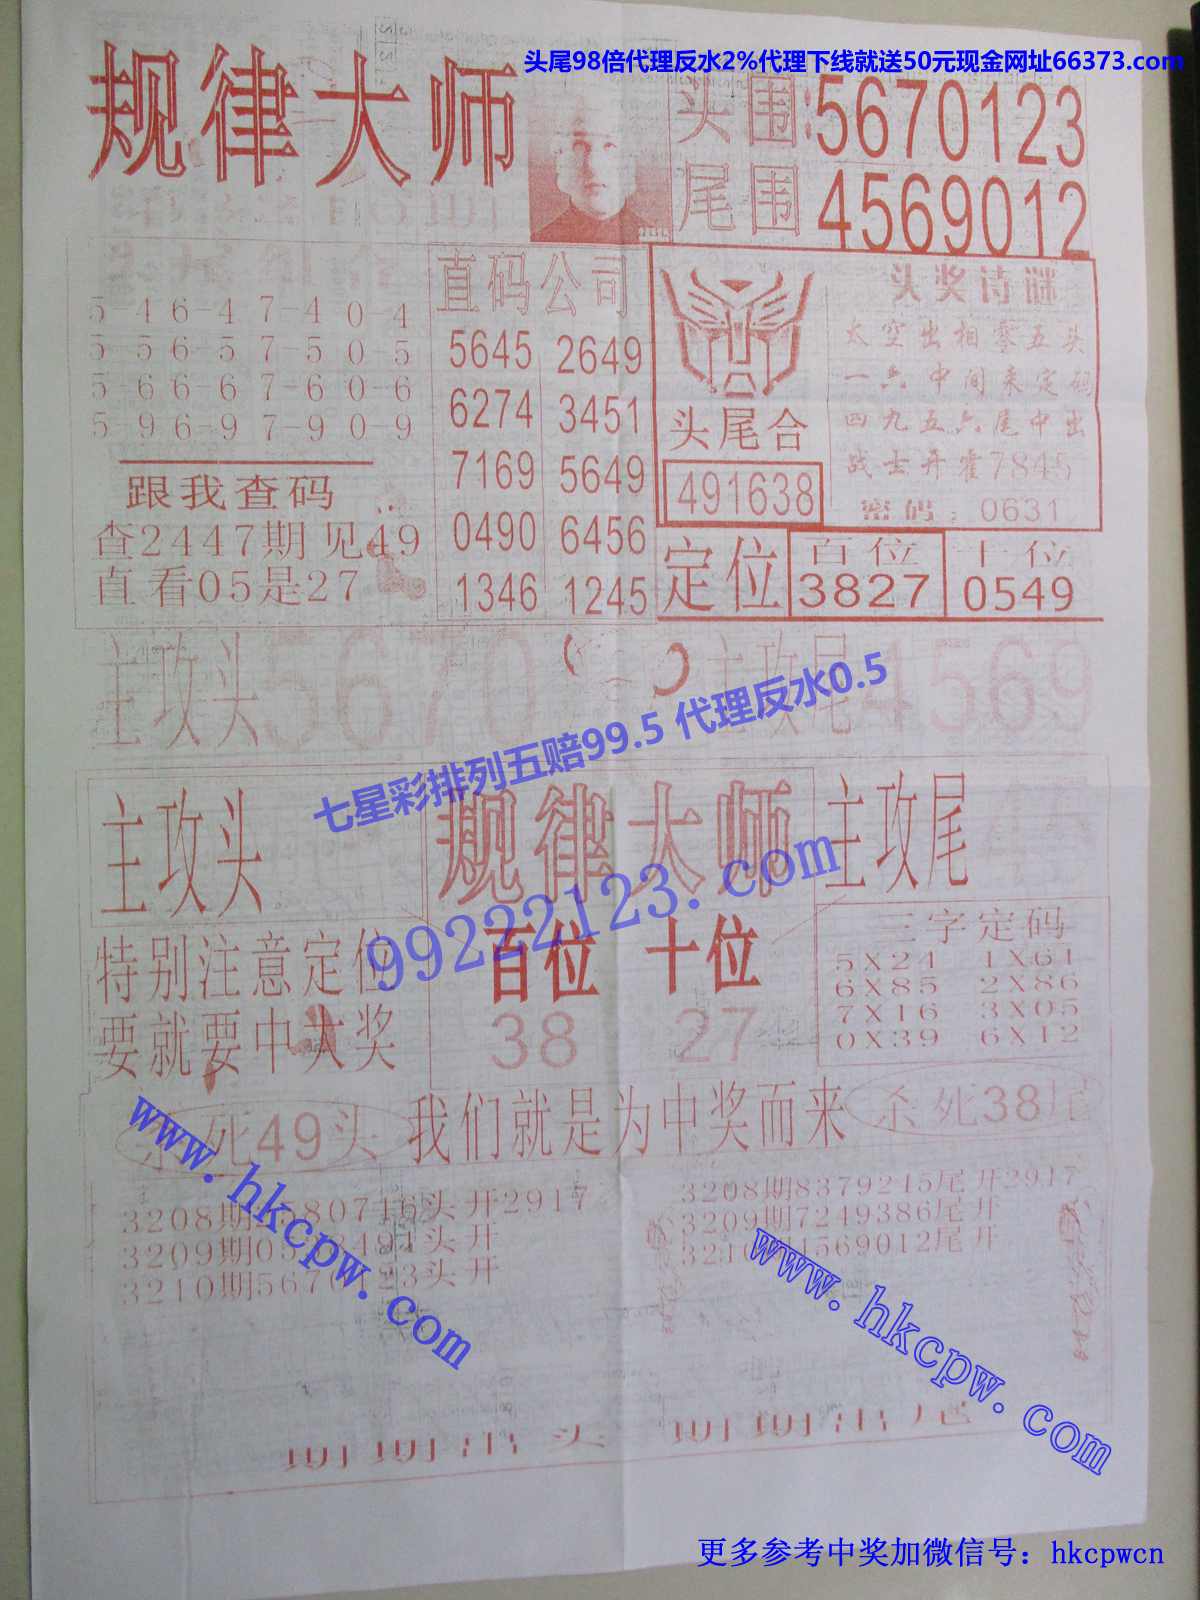 头尾98倍代理反水2%代理下线就送50元现金网址66373.com
规律大师
头围:5670123
尾围4569012
5-4 6-4 7-4 0-4
5-5 6-5 7-5 0-5
5-6 6-6 7-6 0-6
5-9 6-9 7-9 0-9
跟我查码
查2447期 见49
直看05是27
直码公司
5645 2649
6274 3451
7169 5649
0490 6456
1346 1245
头尾合
491638
头奖诗谜
太空出相零五头
一六中间来定码
四九五六尾中出
战士开霍7845
密码：0631
定位
百位 十位
3827 0549
主攻头5670
主攻尾4569
七星彩排列五赔99.5 代理反水0.5
主攻头
规律大师
主攻尾
99222123.com
特别注意定位
要就要中大奖
百位 十位
38 27
三字定码
5X24 1X61
6X85 2X86
7X16 3X05
0X39 6X12
杀死49头
我们就是为中奖而来
杀死38尾
3208期 580716头开2917
3209期0 3491头开
3210期5670123头开
3208期8379245尾开2917
3209期7249386尾开
3210期4569012尾开
www.hkcpw.com
www.hkcpw.com
期期出头 期期出尾
更多参考中奖加微信号：hkcpwcn